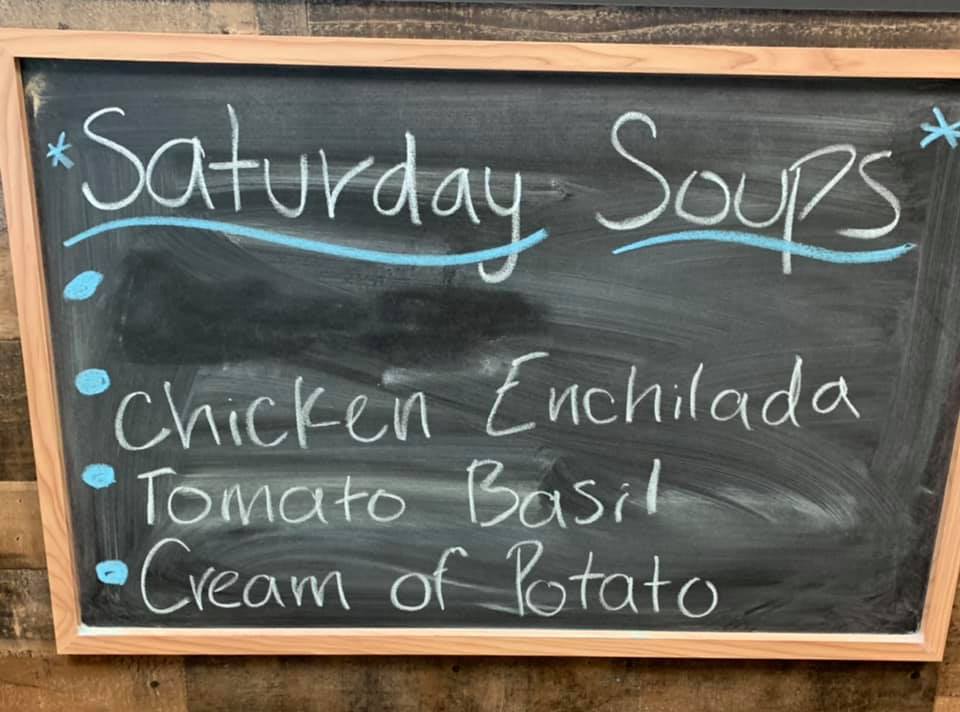 * Saturday Soups *
•
• Chicken Enchilada
• Tomato Basil
• Cream of Potato